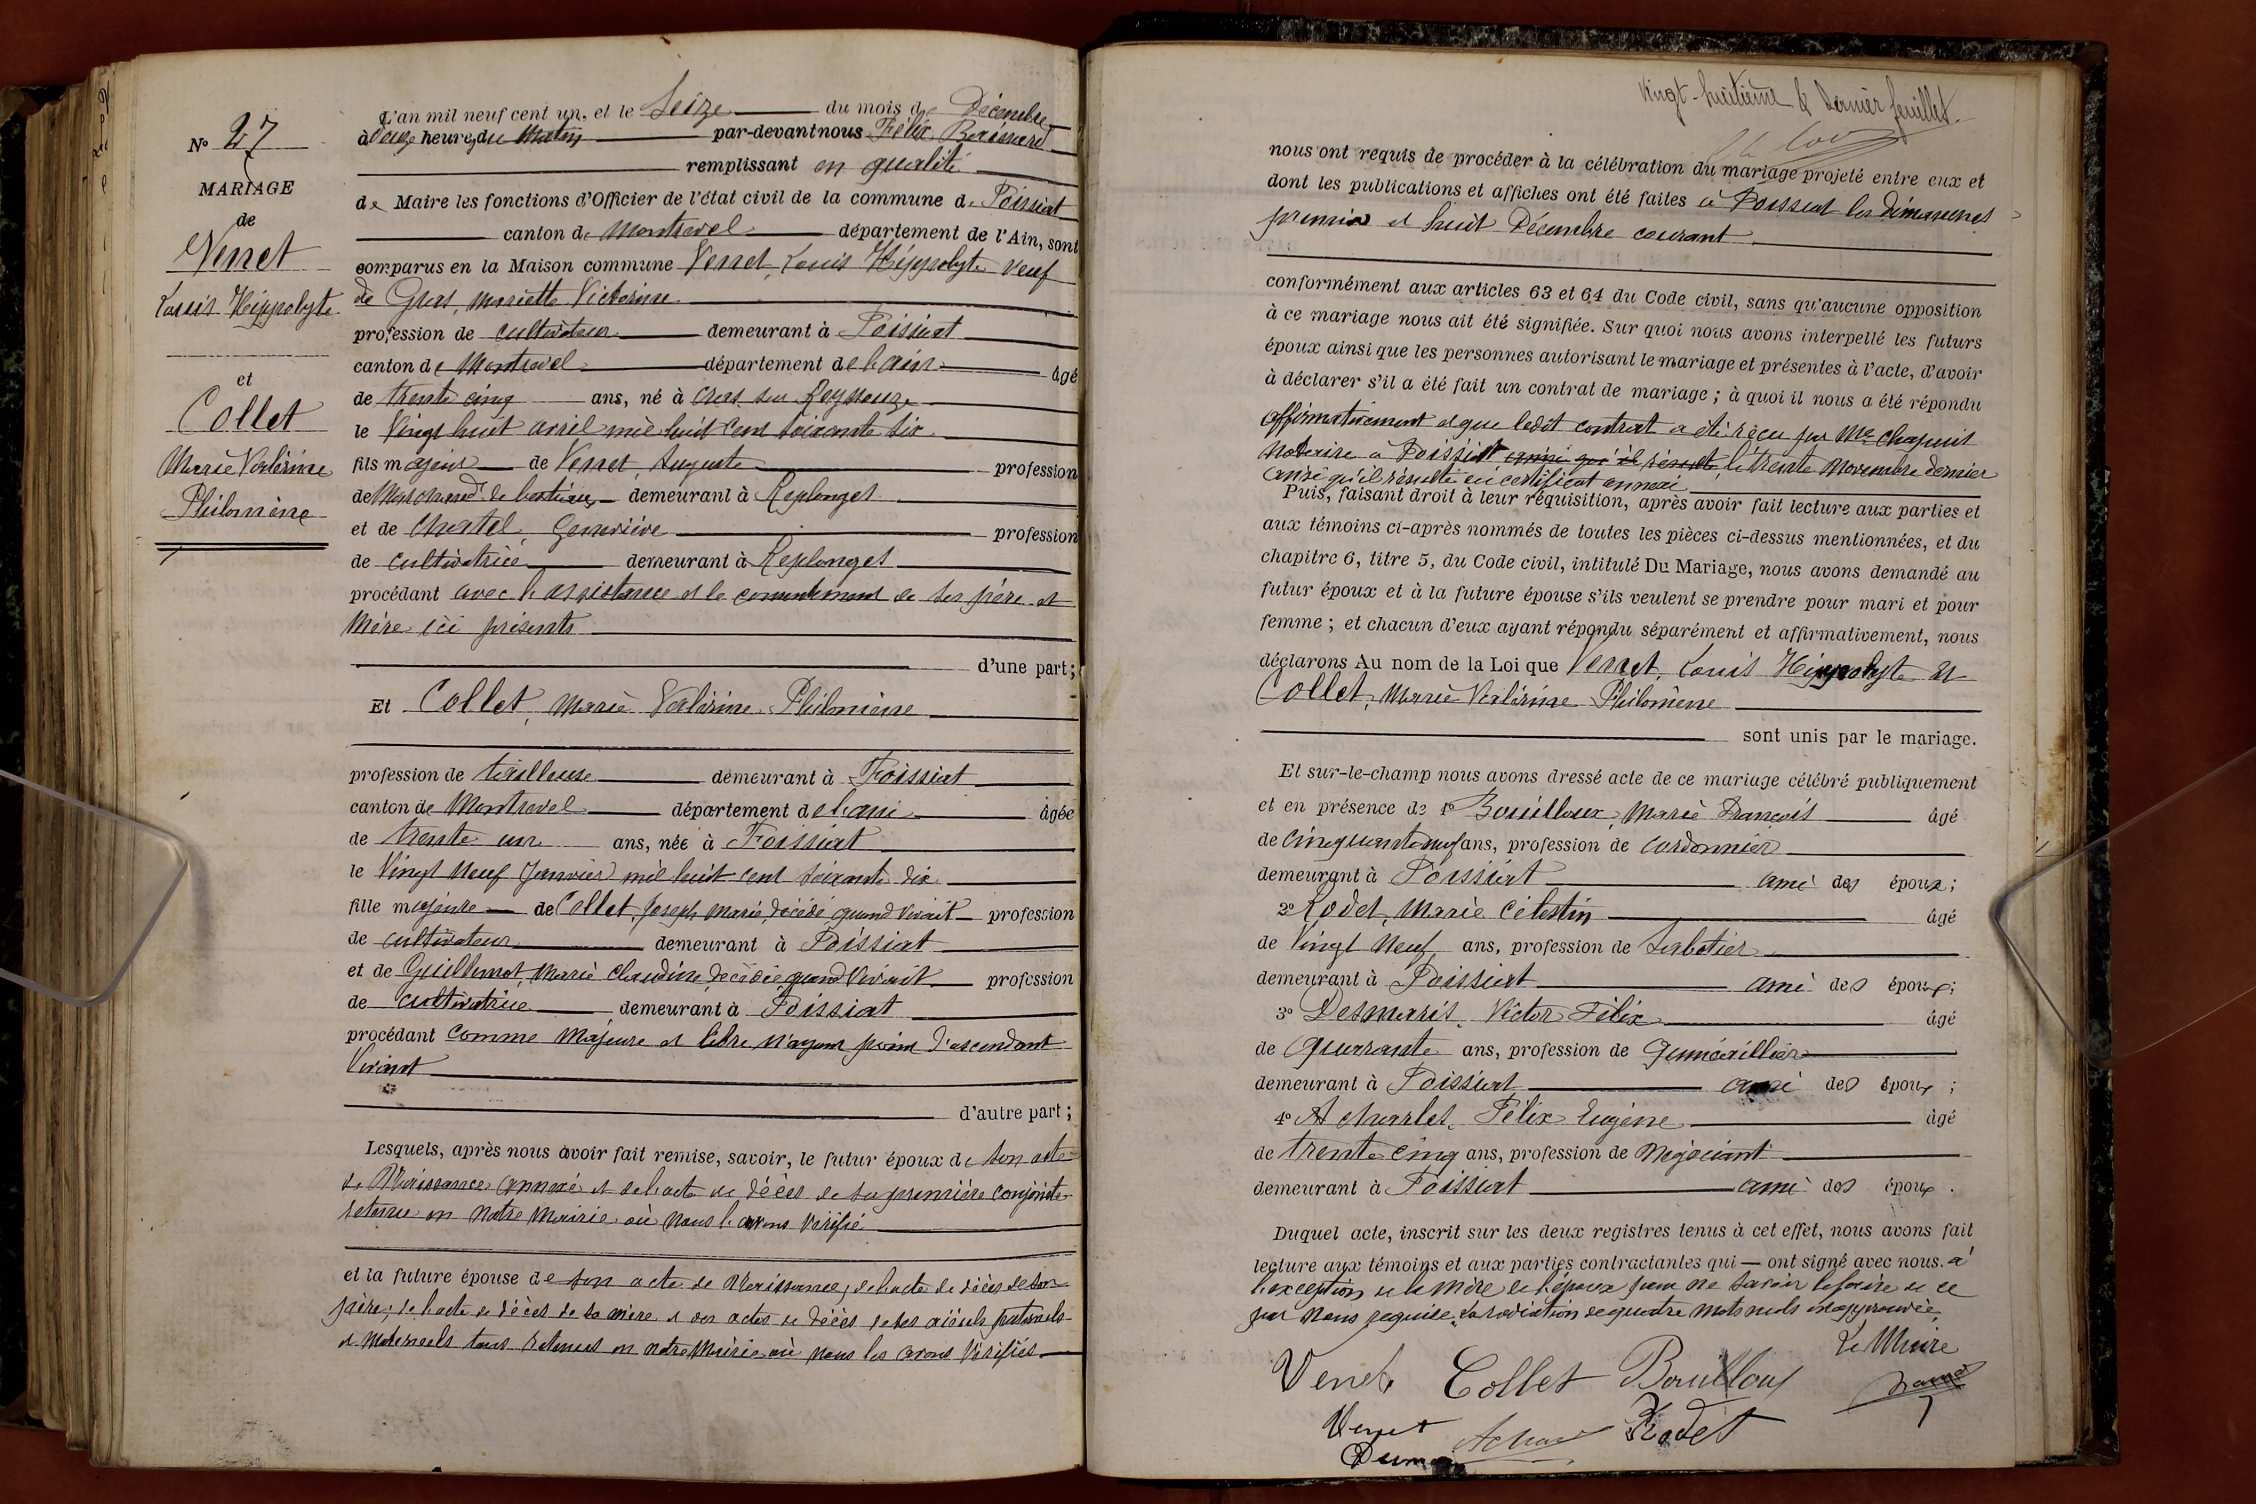 Nº 27
MARIAGE
de
Venet
Louis Hippolyte
et
Collet
Marie Valérine
Philomène
L'an mil neuf cent un, et le Seize du mois de Décembre
à heures du Matin par-devant nous Félix
remplissant en qualité
de Maire les fonctions d'Officier de l'état civil de la commune de Foissiat
canton de Montrevel département de l'Ain, sont
comparus en la Maison commune Venet, Louis Hippolyte veuf
de Gras, Mariette Victorine
profession de cultivateur demeurant à Foissiat
canton de Montrevel département de l'ain âgé
de trente cinq ans, né à Cras sur Reyssouze
le Vingt huit avril mil huit cent soixante six
fils majeur de Venet, Auguste profession
de Marchand de bestiaux demeurant à Replonges
et de Chatel, Geneviève profession
de cultivatrice demeurant à Replonges
procédant avec l'assistance et le consentement de ses père et
Mère ici présents
d'une part;
Et Collet, Marie Valérine Philomène
profession de tailleuse demeurant à Foissiat
canton de Montrevel département de l'ain âgée
de trente un ans, née à Foissiat
le Vingt Neuf Janvier mil huit cent soixante dix
fille majeure de Collet, Joseph Marie, décédé quand vivait profession
de cultivateur demeurant à Foissiat
et de Guillemot, Marie Claudine, décédée quand vivait profession
de cultivatrice demeurant à Foissiat
procédant comme Majeure et libre n'ayant point d'ascendant
Vivant
d'autre part;
Lesquels, après nous avoir fait remise, savoir, le futur époux de son acte
de Naissance annexé et de l'acte de décès de sa première conjointe
retenu en notre Mairie où nous l'avons vérifié
et la future épouse de son acte de Naissance, de l'acte de décès de son
père; de l'acte de décès de sa mère et des actes de décès de ses aïeuls paternels
et maternels tous retenus en notre Mairie où nous les avons Vérifiés
Vingt-huitième & dernier feuillet
nous ont requis de procéder à la célébration du mariage projeté entre eux et
dont les publications et affiches ont été faites à Foissiat les dimanches
premier et huit Décembre courant
conformément aux articles 63 et 64 du Code civil, sans qu'aucune opposition
à ce mariage nous ait été signifiée. Sur quoi nous avons interpellé les futurs
époux ainsi que les personnes autorisant le mariage et présentes à l'acte, d'avoir
à déclarer s'il a été fait un contrat de mariage; à quoi il nous a été répondu
affirmativement et que ledit contrat a été reçu par Me Chapuis
Notaire à Foissiat ainsi qu'il résulte le trente Novembre dernier
ainsi qu'il résulte du certificat annexé
Puis, faisant droit à leur réquisition, après avoir fait lecture aux parties et
aux témoins ci-après nommés de toutes les pièces ci-dessus mentionnées, et du
chapitre 6, titre 5, du Code civil, intitulé Du Mariage, nous avons demandé au
futur époux et à la future épouse s'ils veulent se prendre pour mari et pour
femme; et chacun d'eux ayant répondu séparément et affirmativement, nous
déclarons Au nom de la Loi que Venet, Louis Hippolyte et
Collet, Marie Valérine Philomène
sont unis par le mariage.
Et sur-le-champ nous avons dressé acte de ce mariage célébré publiquement
et en présence de 1º Bouilloux, Marie François âgé
de cinquante neuf ans, profession de cordonnier
demeurant à Foissiat ami des époux;
2º Rodet, Marie Célestin âgé
de Vingt Neuf ans, profession de Sabotier
demeurant à Foissiat ami des époux;
3º Desmaris, Victor Félix âgé
de Quarante ans, profession de Quincaillier
demeurant à Foissiat ami des époux;
4º Acharles, Félix Eugène âgé
de trente cinq ans, profession de Négociant
demeurant à Foissiat ami des époux.
Duquel acte, inscrit sur les deux registres tenus à cet effet, nous avons fait
lecture aux témoins et aux parties contractantes qui — ont signé avec nous. à
l'exception de la mère de l'époux pour ne savoir le faire de ce
par nous requise. La radiation de quatre mots nuls approuvée.
Le Maire
Venet Collet Bouilloux
Venet Rodet